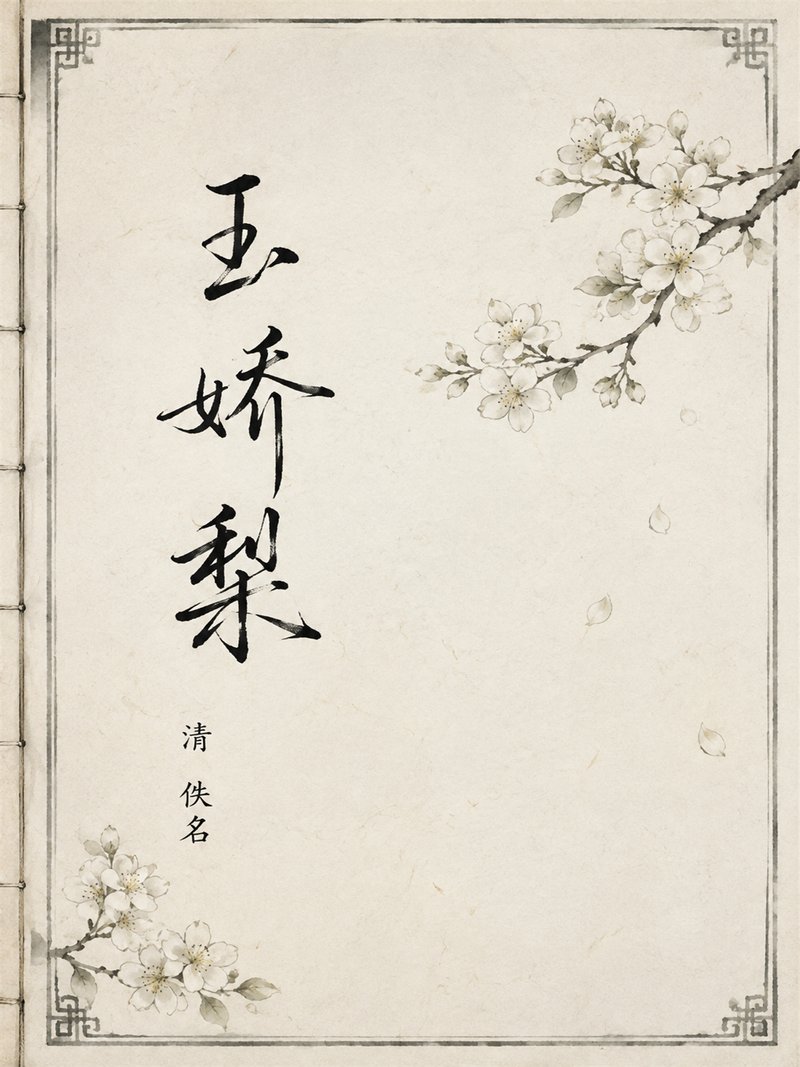 玉娇梨
清 佚名